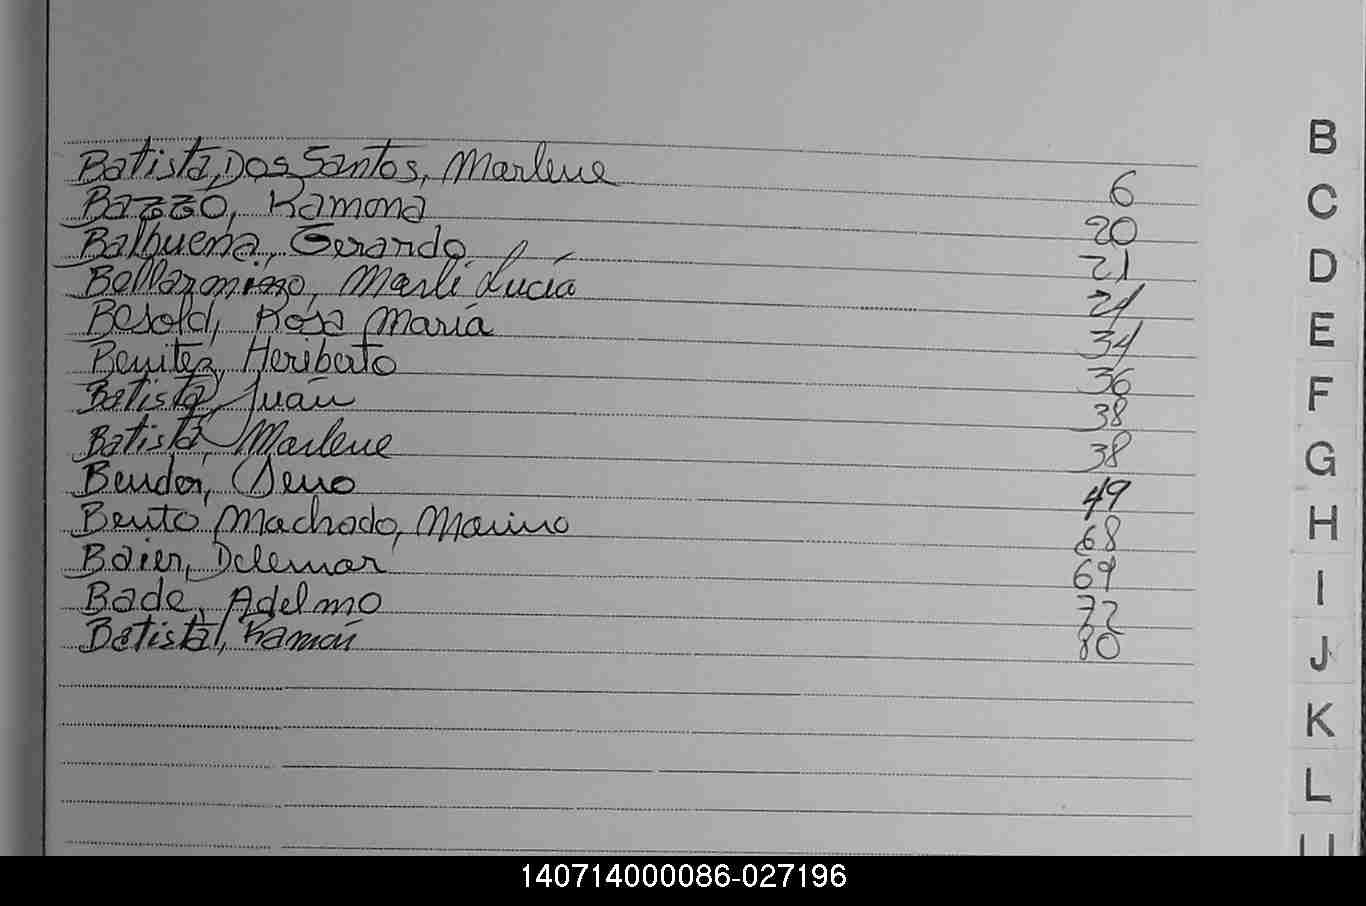 Batista Dos Santos, Marlene 6
Bazzo, Ramona 20
Balbuena, Gerardo 21
Bellarmino, Marli Lucía 24
Besold, Rosa María 34
Benitez, Heriberto 36
Batista, Juan 38
Batista, Marlene 38
Bender, 49
Bento Machado, Marino 68
Baier, Delemar 69
Bade, Adelmo 72
Batista, Ramón 80
B
C
D
E
F
G
H
I
J
K
L
140714000086-027196